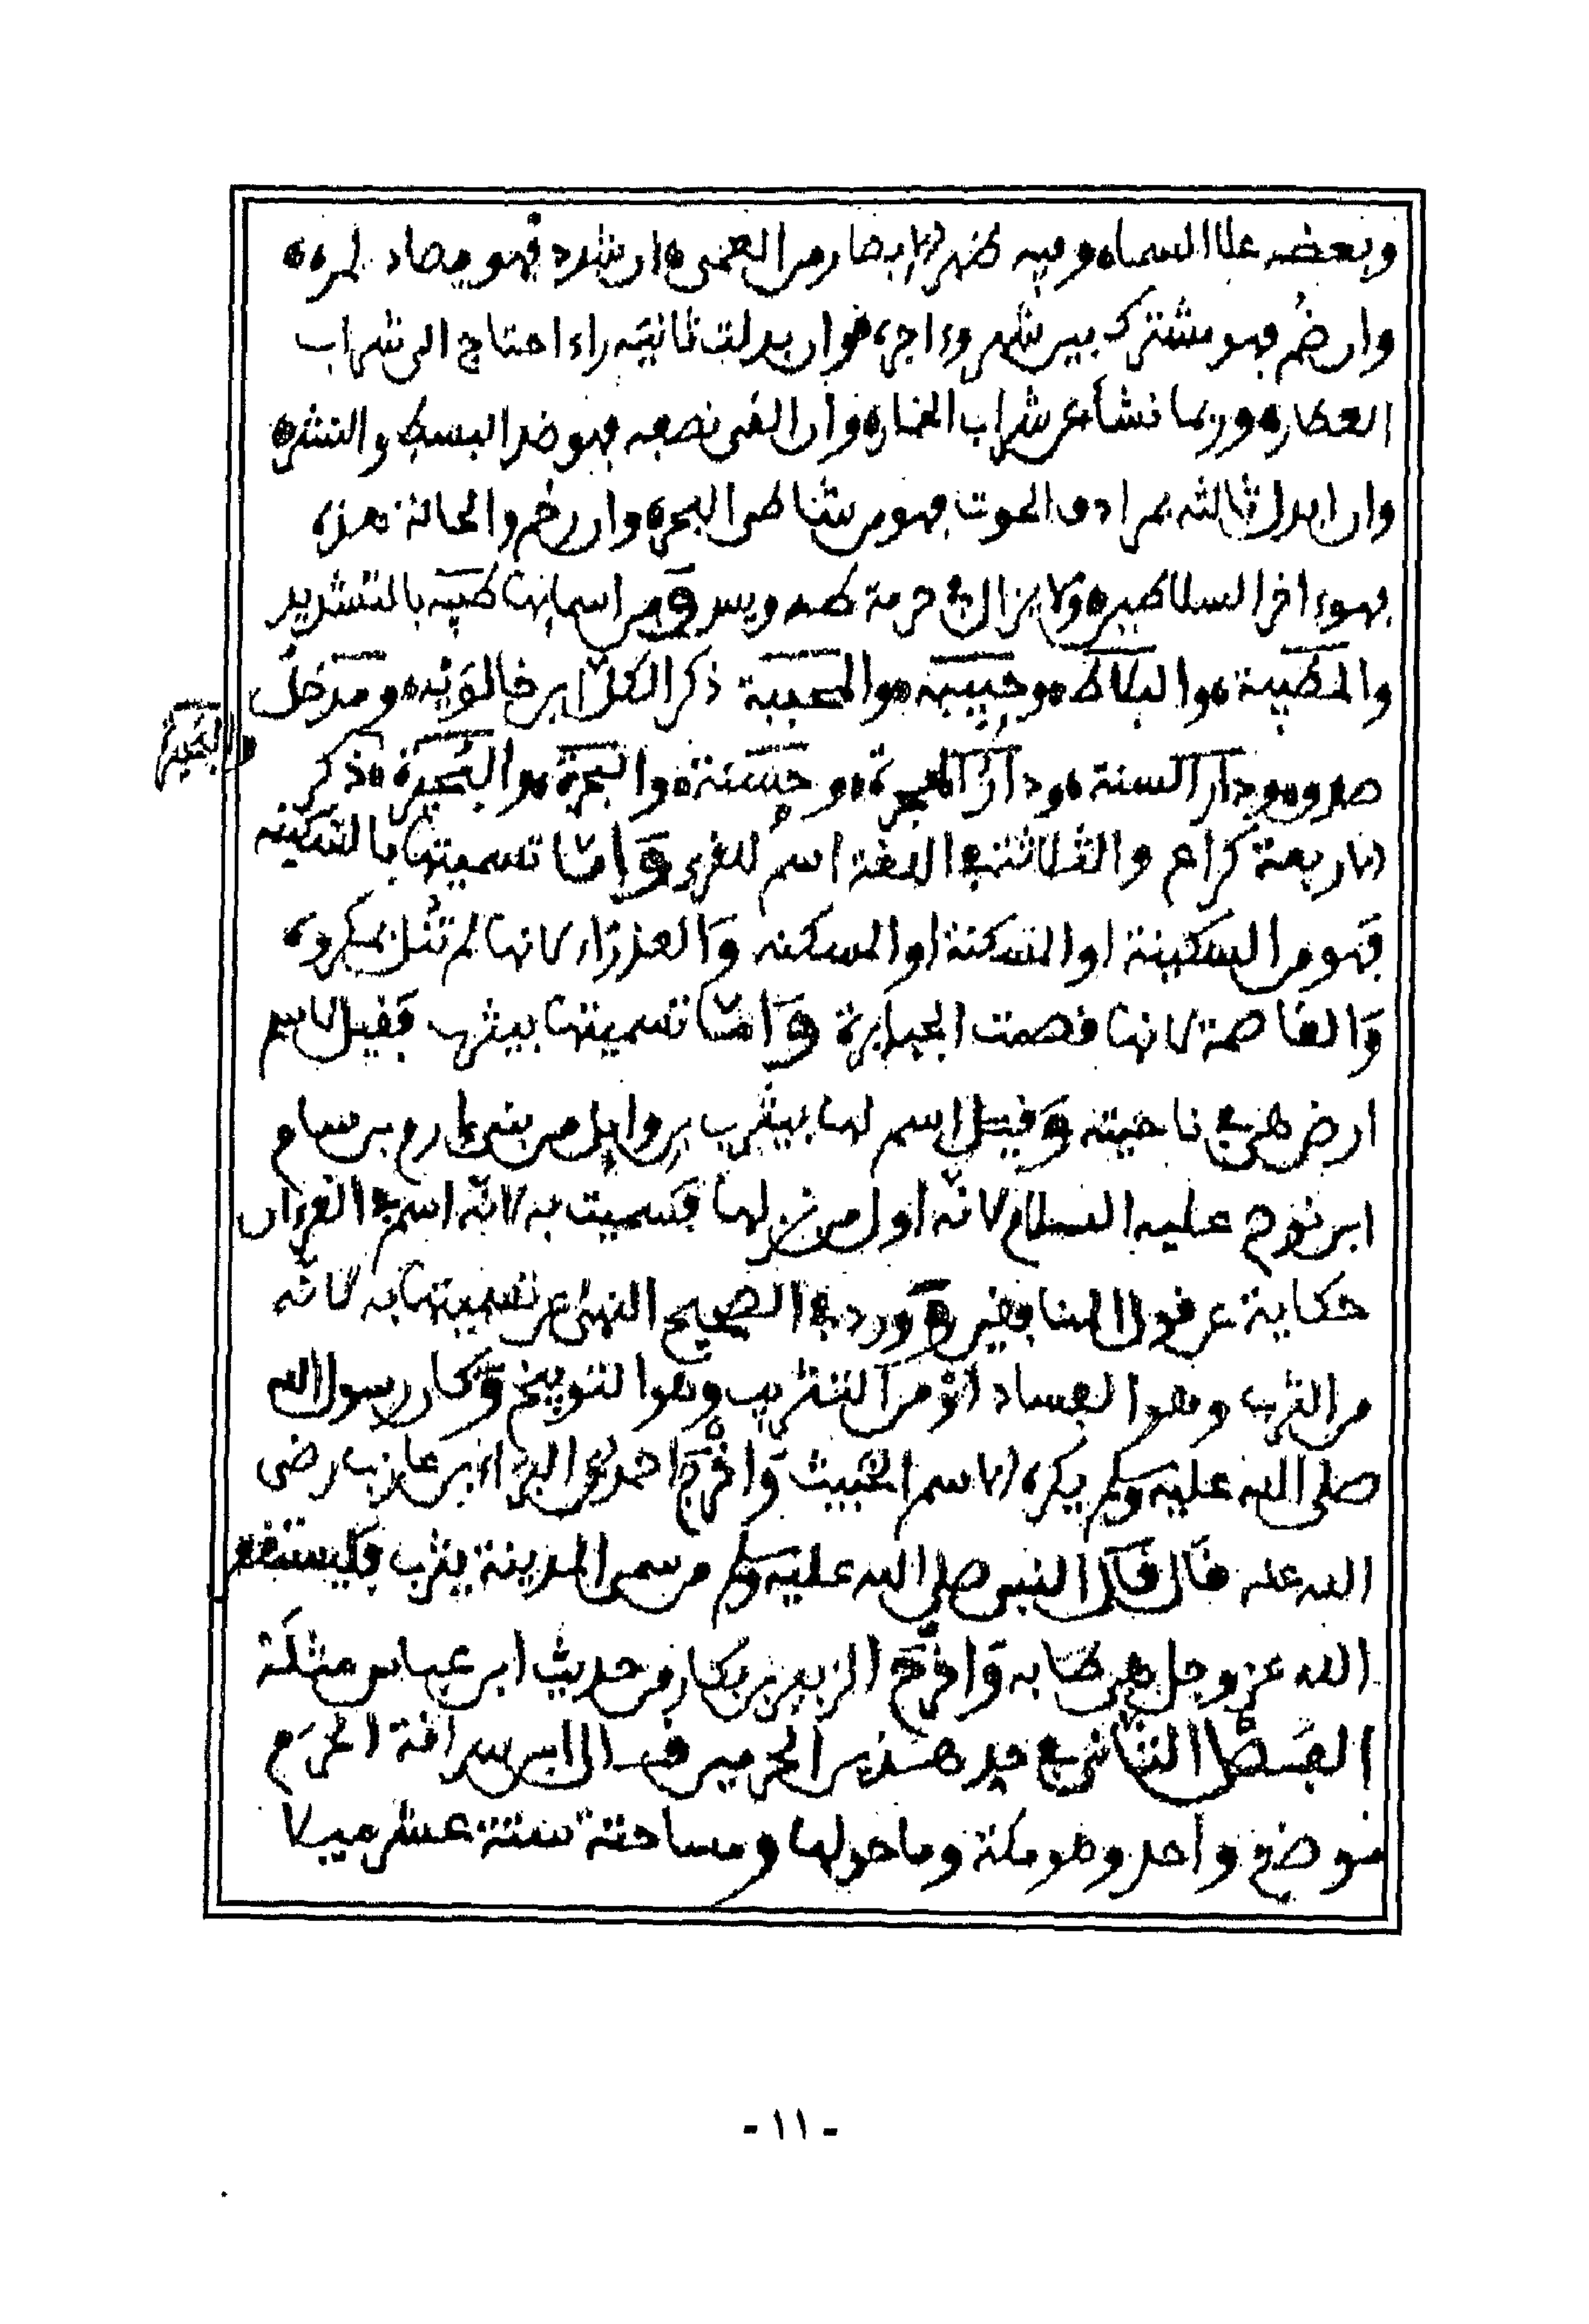 وبعضه علا السماء وفيه ظهر الابصار من العمى ان شدد فهو مضاد لمره
وان ضم فهو مشترك بين شهر وءاجره وان بدلت ثانيه راء احتاج الى شراب
العطاره وربما نشأ عن شراب الخماره وان القى نصفه فهو ضد البسط والنشره
وان ابدل ثالثه بمرادف الحوت فهو من شاطى البحره وان رخم والحالة هذه
فهو ءاخر السلاطين ولا يزال في حرمة طه ويس ومن اسمائها طيبه بالتشديد
والمطيبة والبلاط وحبيبه والمحببة ذكر الكل ابن خالويه ومدخل
صدق ودار السنة ودار الهجرة وحسنة والبحرة والبحيرة ذكر
الاربعة كراع والثلاثة في اللغة اسم للقرى واما تسميتها بالسكينه
فهو من السكينة او التسكنة او المسكنه والعذراء لانها لم تنل بمكروه
والقاصمة لانها قصمت الجبابرة واما تسميتها بيثرب فقيل لاسم
ارض هي في ناحيته وقيل اسم لها بيثرب بن وايل من بني ارم بن سام
ابن نوح عليه السلام لانه اول من نزلها فسميت به لانه اسم في القرءان
حكاية عن قول المنافقين وورد في الصحيح النهى عن تسميتها به لانه
من الثرب وهو الفساد او من التثريب وهو التوبيخ وكان رسول الله
صلى الله عليه وسلم يكره الاسم الخبيث واخرج احمد عن البراء بن عازب رضى
الله عنه قال قال النبى صلى الله عليه وسلم من سمى المدينة يثرب فليستغفر
الله عز وجل هى طابه واخرج الزبير بن بكار من حديث ابن عباس مثله
الفصل الثانى في حد هذين الحرمين قال ابن سراقة الحرم
موضع واحد وهو مكة وما حولها ومساحته ستة عشر ميلا
والبحيرة
- ١١ -